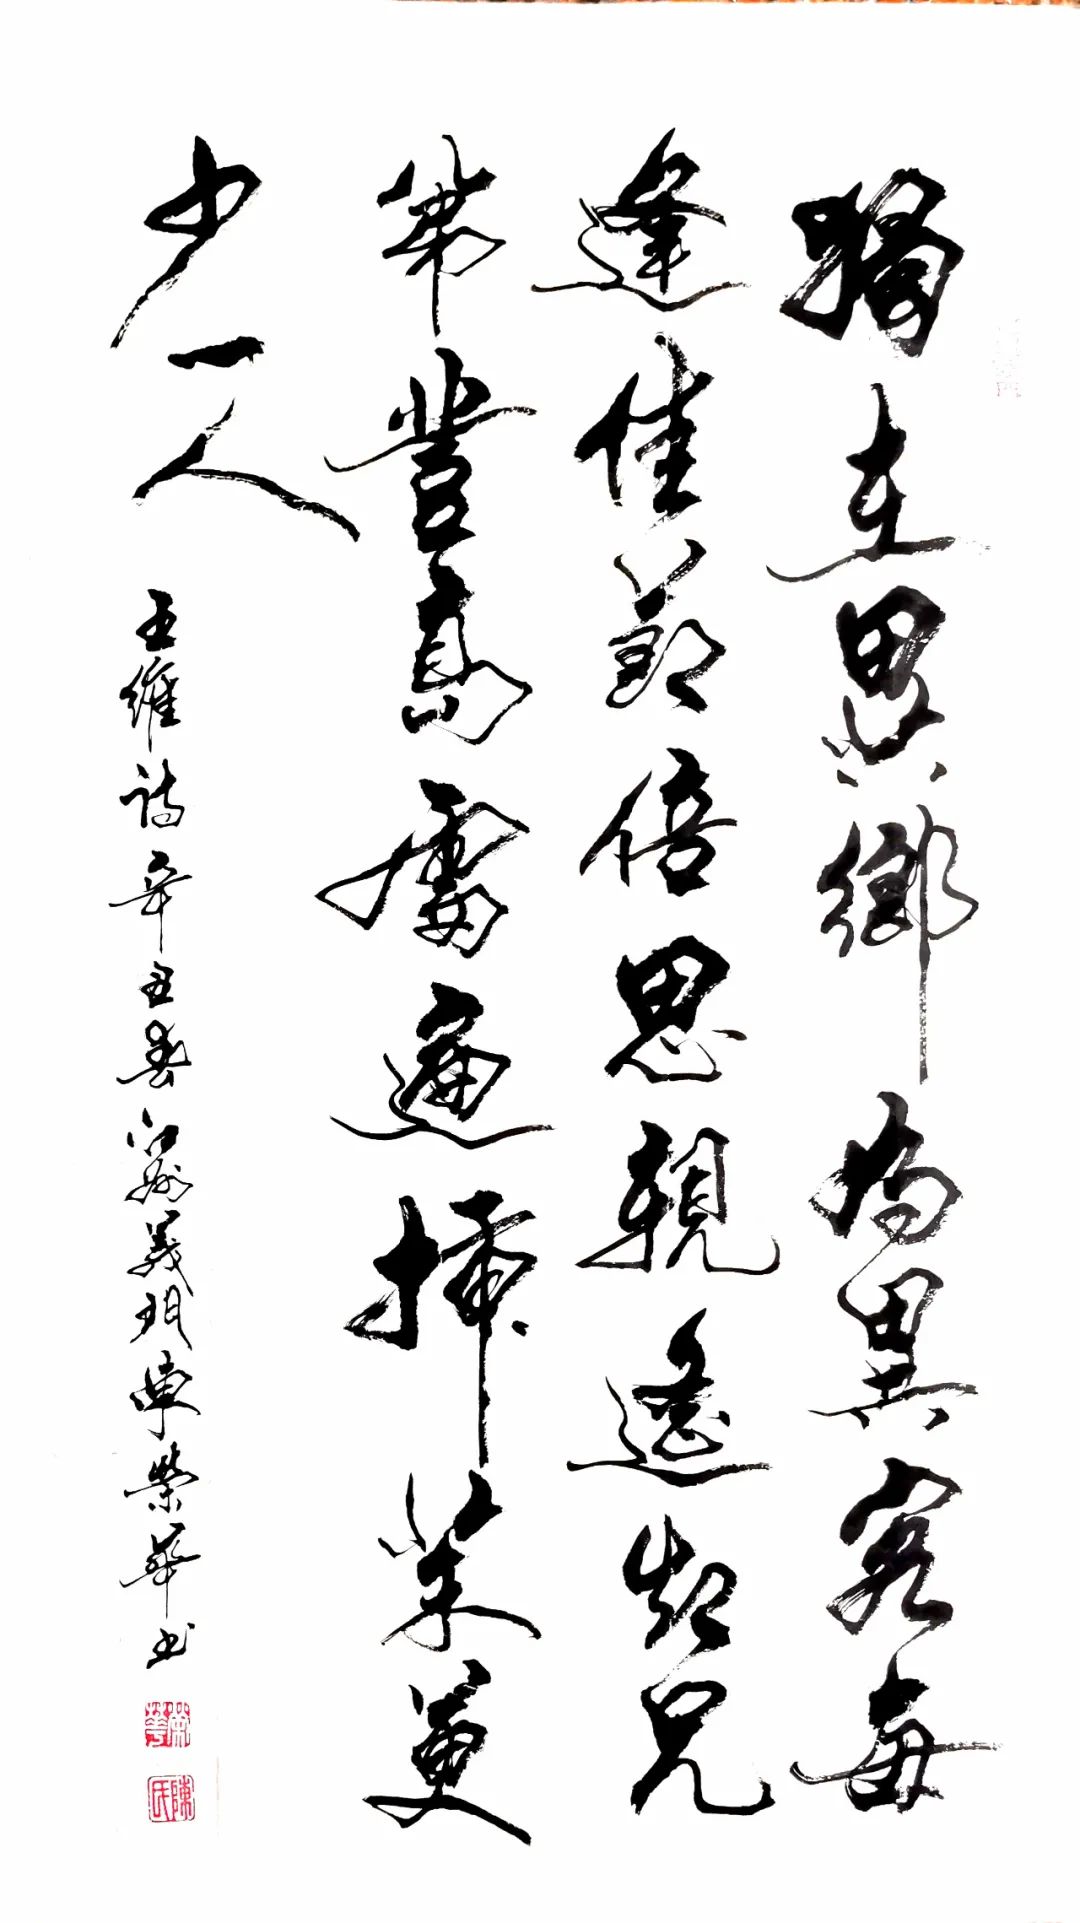 獨在異鄉為異客每
逢佳節倍思親遙知兄
弟登高處遍插茱萸
少一人
王維詩辛丑春江州義門陳榮華书
榮華
陳氏